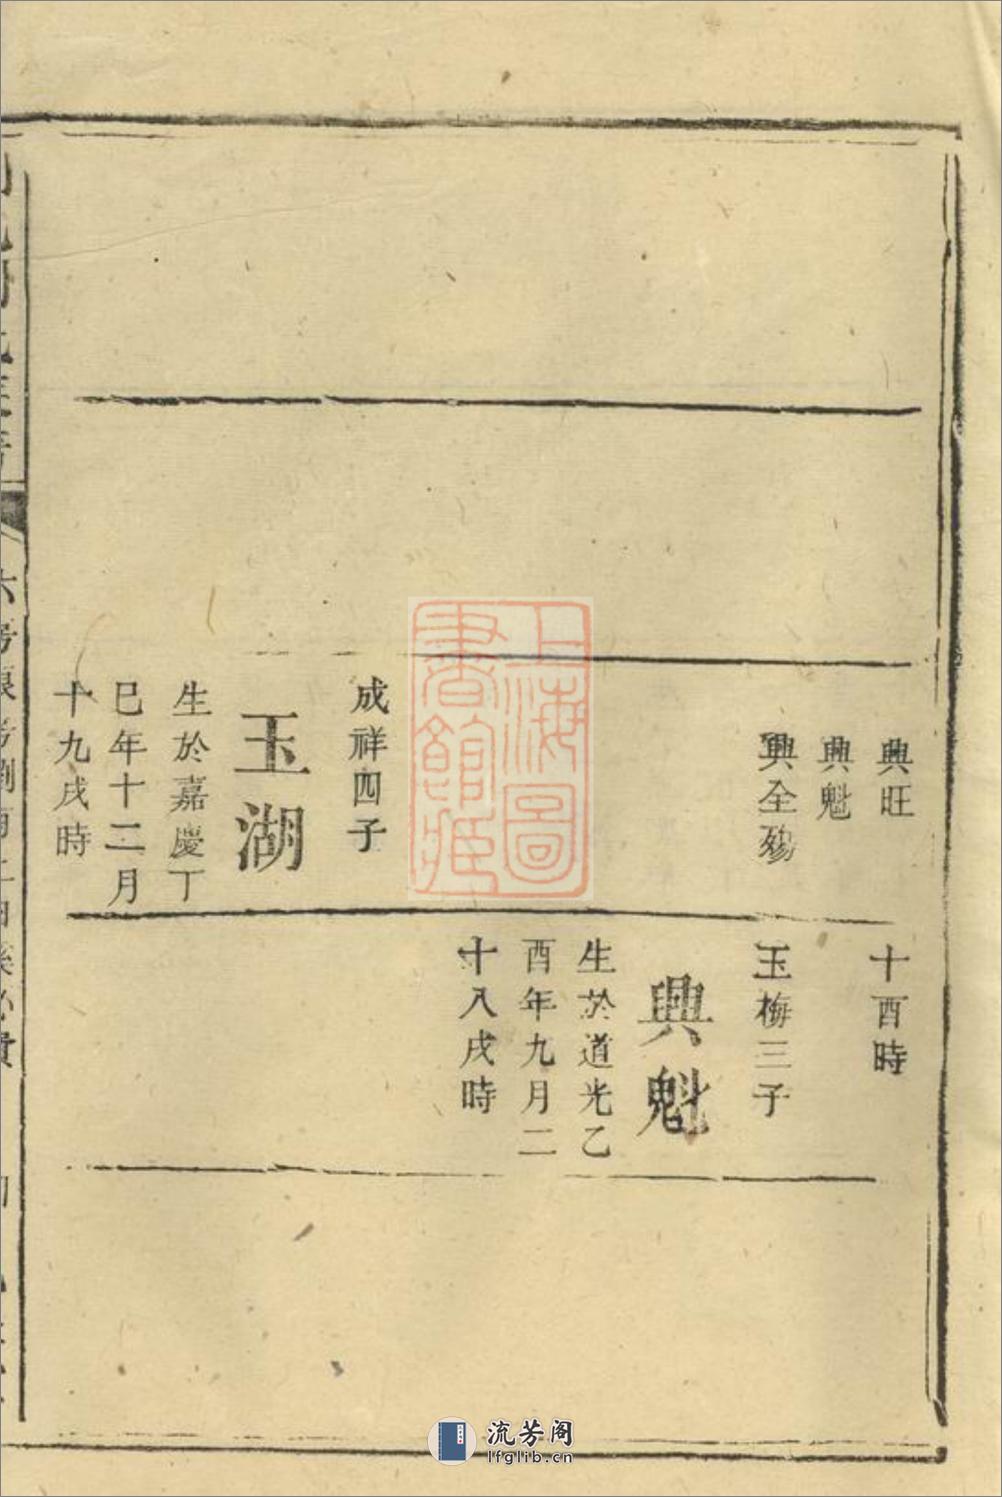 興旺
興魁
興全殤
成祥四子
玉湖
生於嘉慶丁
巳年十二月
十九戌時
十酉時
玉梅三子
興魁
生於道光乙
酉年九月二
十八戌時
上海圖
書館藏
流芳阁
lfglib.cn